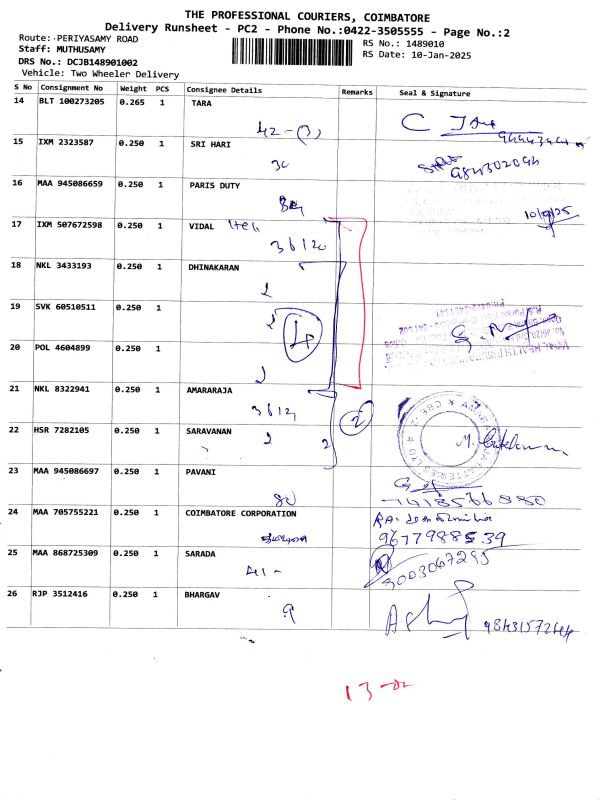 THE PROFESSIONAL COURIERS, COIMBATORE
Delivery Runsheet - PC2 - Phone No.:0422-3505555 - Page No.:2
Route: PERIYASAMY ROAD
RS No.: 1489010
Staff: MUTHUSAMY
RS Date: 10-Jan-2025
DRS No.: DCJB148901002
Vehicle: Two Wheeler Delivery
S No Consignment No Weight PCS Consignee Details Remarks Seal & Signature
14 BLT 100273205 0.265 1 TARA
15 IXM 2323587 0.250 1 SRI HARI
30
16 MAA 945086659 0.250 1 PARIS DUTY
17 IXM 507672598 0.250 1 VIDAL
36120
18 NKL 3433193 0.250 1 DHINAKARAN
2
19 SVK 60510511 0.250 1
2
20 POL 4604899 0.250 1
2
21 NKL 8322941 0.250 1 AMARARAJA
2
22 HSR 7282105 0.250 1 SARAVANAN
2 2
23 MAA 945086697 0.250 1 PAVANI
80
24 MAA 705755221 0.250 1 COIMBATORE CORPORATION
9677988539
25 MAA 868725309 0.250 1 SARADA
41-
9003067295
26 RJP 3512416 0.250 1 BHARGAV
9
13